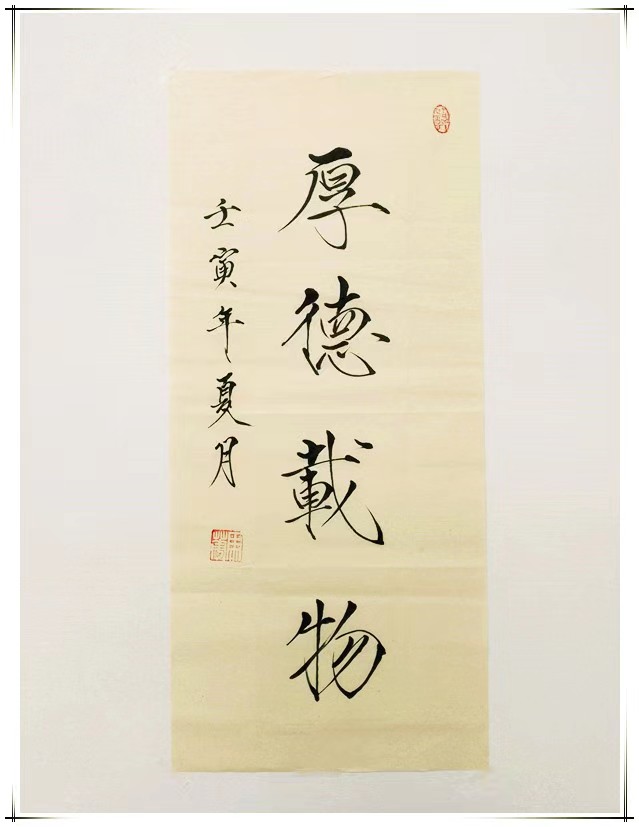 厚德載物
壬寅年夏月